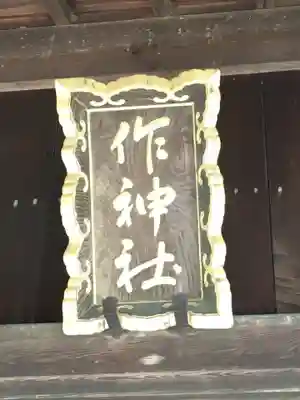 作神社